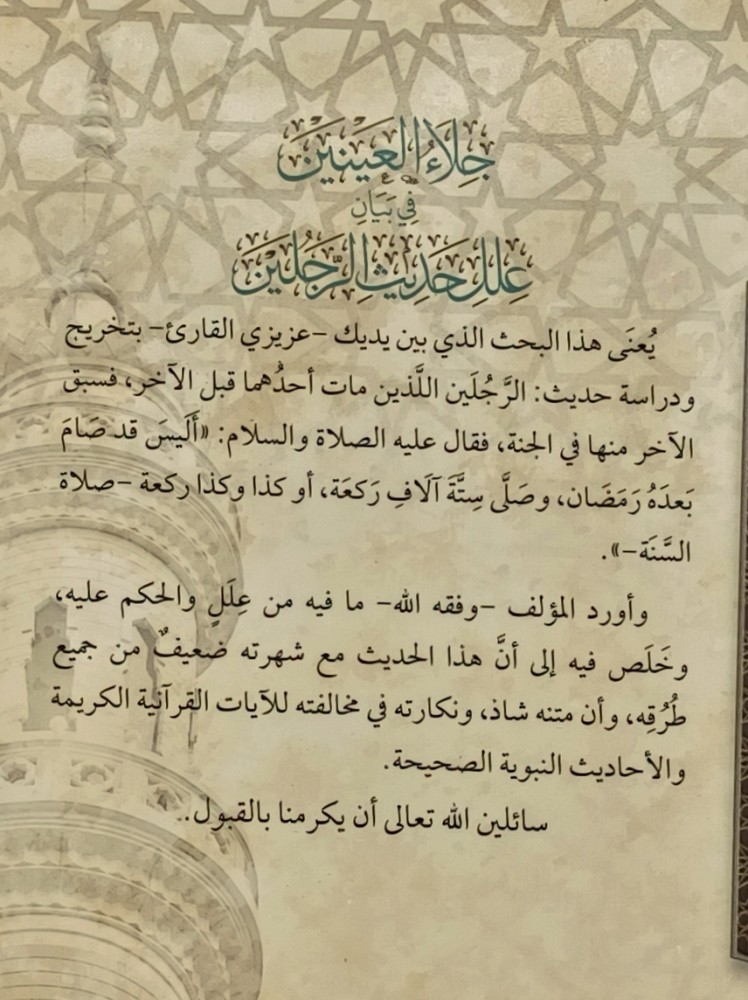 جِلَاءُ العَينَينِ
فِي بَيَانِ
عِلَلِ حَدِيثِ الرَّجُلَينِ
يُعنَى هذا البحث الذي بين يديك –عزيزي القارئ– بتخريج
ودراسة حديث: الرَّجُلَين اللَّذين مات أحدُهما قبل الآخر، فسبق
الآخر منها في الجنة، فقال عليه الصلاة والسلام: «أَلَيسَ قد صَامَ
بَعدَهُ رَمَضَان، وصَلَّى سِتَّةَ آلَافِ رَكعَة، أو كذا وكذا ركعة –صلاة
السَّنَة–».
وأورد المؤلف –وفقه الله– ما فيه من عِلَلٍ والحكم عليه،
وخَلَص فيه إلى أنَّ هذا الحديث مع شهرته ضعيفٌ من جميع
طُرُقِه، وأن متنه شاذ، ونكارته في مخالفته للآيات القرآنية الكريمة
والأحاديث النبوية الصحيحة.
سائلين الله تعالى أن يكرمنا بالقبول..